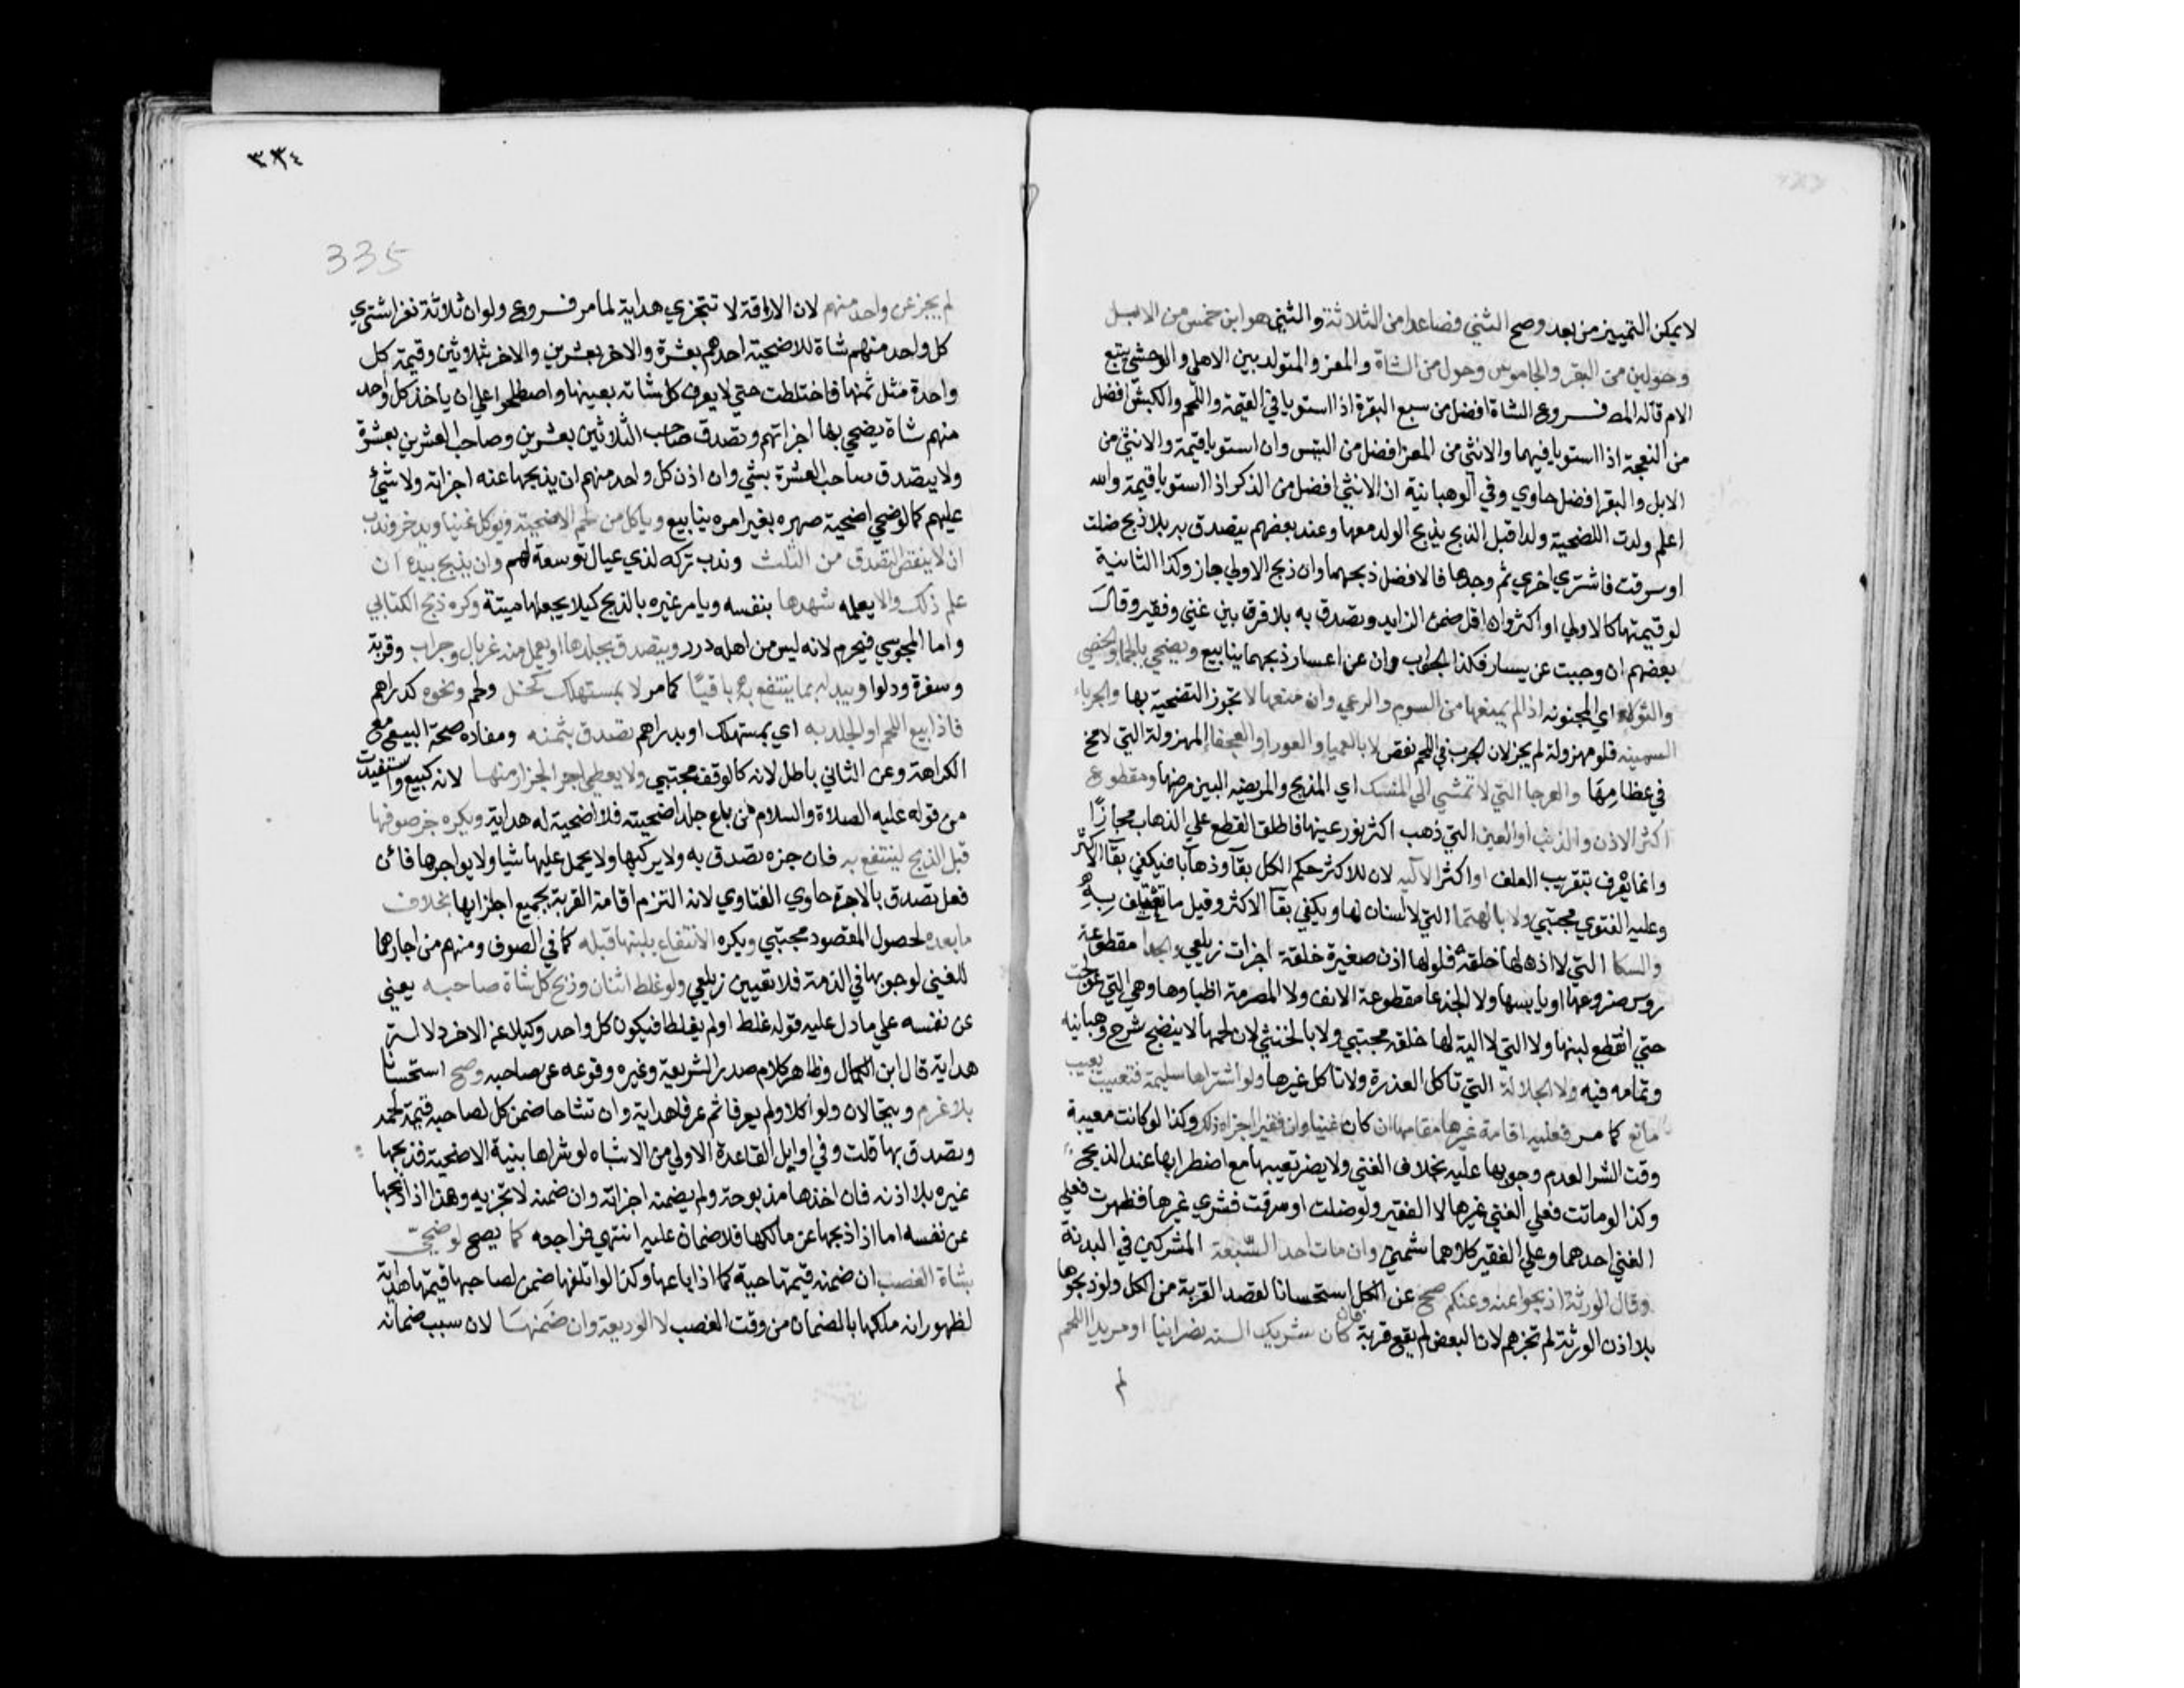 لا يمكن التمييز من بعد وصح الثني فصاعدا من الثلاثة والثني هو ابن خمس من الابل
وحولين من البقر والجاموس وحول من الشاة والمعز والمتولد بين الاهلي والوحشي يتبع
الام قاله المص فروع الشاة افضل من سبع البقرة اذا استويا في القيمة واللحم والكبش افضل
من النعجة اذا استويا فيهما والانثي من المعز افضل من التيس وان استويا قيمة والانثي من
الابل والبقر افضل حاوي وفي الوهبانية ان الانثي افضل من الذكر اذا استويا قيمة والله
اعلم ولدت الاضحية ولدا قبل الذبح يذبح الولد معها وعند بعضهم يتصدق به بلا ذبح ضلت
او سرقت فاشتري اخري ثم وجدها فالافضل ذبحهما وان ذبح الاولي جاز وكذا الثانية
لو قيمتها كالاولي او اكثر وان اقل ضمن الزايد ويتصدق به بلا فرق بين غني وفقير وقال
بعضهم ان وجبت عن يسار فكذا الجواب وان عن اعسار ذبحهما ينابيع ويضحي بالجما والخصي
والثولا اي المجنونه اذا لم يمنعها من السوم والرعي وان منعها لا تجوز التضحية بها والجرباء
السمينه فلو مهزولة لم يجز لان الجرب في اللحم نقص لا بالعميا والعورا والعجفا المهزولة التي لا مخ
في عظامها والعرجا التي لا تمشي الي المنسك اي المذبح والمريضه البين مرضها ومقطوع
اكثر الاذن والذنب او العين التي ذهب اكثر نور عينها فاطلق القطع علي الذهاب مجازا
وانما يعرف بتقريب العلف او اكثر الاليه لان للاكثر حكم الكل بقآ وذهابا فيكفي بقآ الاكثر
وعليه الفتوي مجتبي ولا بالهتما التي لا اسنان لها ويكفي بقآ الاكثر وقيل ما تعتلف به
والسكا التي لا اذن لها خلقة فلو لها اذن صغيرة خلقة اجزات زيلعي والجدا مقطوعة
روس ضروعها او يابسها ولا الجدعا مقطوعة الانف ولا المصرمة اظباوها وهي التي عولجت
حتي انقطع لبنها ولا التي لا الية لها خلقه مجتبي ولا بالخنثي لان لحمها لا ينضج شرح وهبانيه
وتمامه فيه ولا الجلالة التي تاكل العذرة ولا تاكل غيرها ولو اشتراها سليمة فتعيبت بعيب
مانع كما مر فعليه اقامة غيرها مقامها ان كان غنيا وان فقيرا اجزاه ذلك وكذا لو كانت معيبة
وقت الشرا لعدم وجوبها عليه بخلاف الغني ولا يضر تعيبها مع اضطرابها عند الذبح
وكذا لو ماتت فعلي الغني غيرها لا الفقير ولو ضلت او سرقت فشري غيرها فظهرت فعلي
الغني احدهما وعلي الفقير كلاهما شمني وان مات احد السبعة المشتركين في البدنة
وقال الورثة اذبحوا عنه وعنكم صح عن الكل استحسانا لقصد القربة من الكل ولو ذبحوها
بلا اذن الورثة لم تجزهم لان البعض لم يقع قربة فان كان شريك الستة نصرانيا او مريدا اللحم
لم
٣٣٤
335
لم يجز عن واحد منهم لان الاراقة لا تتجزي هداية لما مر فروع ولو ان ثلاثة نفر اشتري
كل واحد منهم شاة للاضحية احدهم بعشرة والاخر بعشرين والاخر بثلاثين وقيمة كل
واحدة مثل ثمنها فاختلطت حتي لا يعرف كل شاته بعينها واصطلحوا علي ان ياخذ كل واحد
منهم شاة يضحي بها اجزاتهم ويتصدق صاحب الثلاثين بعشرين وصاحب العشرين بعشرة
ولا يتصدق صاحب العشرة بشي وان اذن كل واحد منهم ان يذبحها عنه اجزاته ولا شئ
عليهم كما لو ضحي اضحية صهره بغير امره ينابيع وياكل من لحم الاضحية ويوكل غنيا ويدخر وندب
ان لا ينقص التصدق من الثلث وندب تركه لذي عيال توسعة لهم وان يذبح بيده ان
علم ذلك والا يعلمه شهدها بنفسه ويامر غيره بالذبح كيلا يجعلها ميتة وكره ذبح الكتابي
واما المجوسي فيحرم لانه ليس من اهله درر ويتصدق بجلدها او يعمل منه غربال وجراب وقربة
وسفرة ودلوا ويبدله بما ينتفع به باقيا كما مر لا بمستهلك كخل ولحم ونحوه كدراهم
فاذا بيع اللحم او الجلد به اي بمستهلك او بدراهم تصدق بثمنه ومفاده صحة البيع مع
الكراهة وعن الثاني باطل لانه كالوقف مجتبي ولا يعطي اجر الجزار منها لانه كبيع واستفيدت
من قوله عليه الصلاة والسلام من باع جلد اضحيته فلا اضحية له هداية ويكره جز صوفها
قبل الذبح لينتفع به فان جزه تصدق به ولا يركبها ولا يحمل عليها شيا ولا يواجرها فان
فعل تصدق بالاجرة حاوي الفتاوي لانه التزم اقامة القربة بجميع اجزايها بخلاف
ما بعده لحصول المقصود مجتبي ويكره الانتفاع بلبنها قبله كما في الصوف ومنهم من اجازهما
للغني لوجوبها في الذمة فلا تتعين زيلعي ولو غلط اثنان وذبح كل شاة صاحبه يعني
عن نفسه علي ما دل عليه قوله غلط او لم يغلطا فيكون كل واحد وكيلا عن الاخر دلالة
هداية قال ابن الكمال وظاهر كلام صدر الشريعة وغيره وقوعه عن صاحبه وصح استحسانا
بلا غرم ويتحالان ولو اكلا ولم يعرفا ثم عرفا هداية وان تشاحا ضمن كل لصاحبه قيمة لحمه
وتصدق بها قلت وفي اوايل القاعدة الاولي من الاشباه لو شراها بنية الاضحية فذبحها
غيره بلا اذنه فان اخذها مذبوحة ولم يضمنه اجزاته وان ضمنه لا تجزيه وهذا اذا ذبحها
عن نفسه اما اذا ذبحها عن مالكها فلا ضمان عليه انتهي فراجعه كما يصح لو ضحي
بشاة الغصب ان ضمنه قيمتها حية كما اذا باعها وكذا لو اتلفها ضمن لصاحبها قيمتها هداية
لظهور انه ملكها بالضمان من وقت الغصب لا الوديعة وان ضمنها لان سبب ضمانه